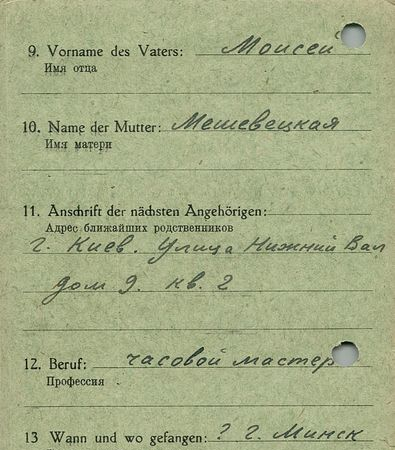 9. Vorname des Vaters: Моисей
Имя отца
10. Name der Mutter: Мешевецкая
Имя матери
11. Anschrift der nächsten Angehörigen:
Адрес ближайших родственников
г. Киев. Улица Нижний Вал
дом 9. кв. 2
12. Beruf: часовой мастер
Профессия
13 Wann und wo gefangen: ? г. Минск